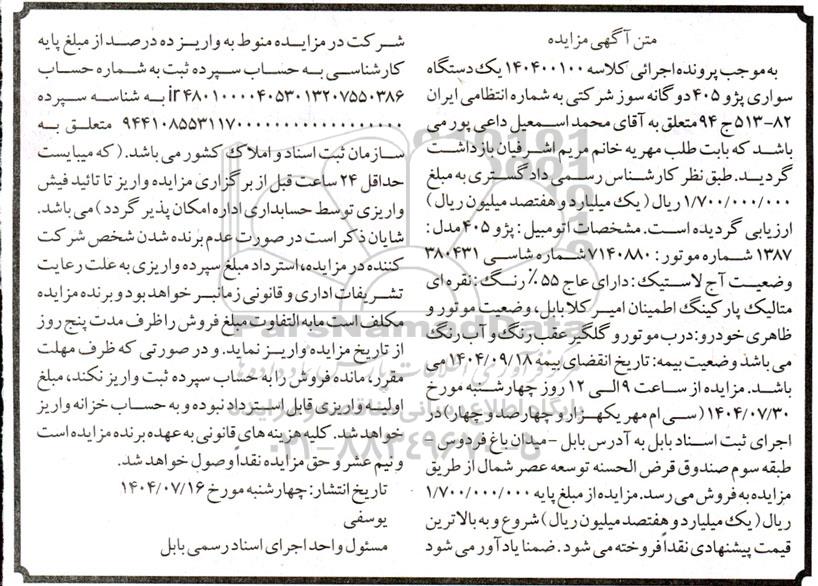 متن آگهی مزایده
به موجب پرونده اجرائی کلاسه ۱۴۰۴۰۰۱۰۰ یک دستگاه
سواری پژو ۴۰۵ دوگانه سوز شرکتی به شماره انتظامی ایران
۸۲-۵۱۳ ج ۹۴ متعلق به آقای محمد اسمعیل داعی پور می
باشد که بابت طلب مهریه خانم مریم اشرفیان بازداشت
گردید. طبق نظر کارشناس رسمی دادگستری به مبلغ
۱/۷۰۰/۰۰۰/۰۰۰ ریال ( یک میلیارد و هفتصد میلیون ریال )
ارزیابی گردیده است. مشخصات اتومبیل: پژو ۴۰۵ مدل:
۱۳۸۷ شماره موتور: ۷۱۴۰۸۸۰ شماره شاسی ۳۸۰۴۳۱
وضعیت آج لاستیک: دارای عاج ۵۵٪ رنگ: نقره ای
متالیک پارکینگ اطمینان امیرکلا بابل، وضعیت موتور و
ظاهری خودرو: درب موتور و گلگیر عقب رنگ و آب رنگ
می باشد وضعیت بیمه: تاریخ انقضای بیمه ۱۴۰۴/۰۹/۱۸ می
باشد. مزایده از ساعت ۹ الی ۱۲ روز چهارشنبه مورخ
۱۴۰۴/۰۷/۳۰ (سی ام مهر یکهزار و چهارصد و چهار) در
اجرای ثبت اسناد بابل به آدرس بابل - میدان باغ فردوس -
طبقه سوم صندوق قرض الحسنه توسعه عصر شمال از طریق
مزایده به فروش می رسد. مزایده از مبلغ پایه ۱/۷۰۰/۰۰۰/۰۰۰
ریال ( یک میلیارد و هفتصد میلیون ریال ) شروع و به بالاترین
قیمت پیشنهادی نقداً فروخته می شود. ضمنا یادآور می شود
شرکت در مزایده منوط به واریز ده درصد از مبلغ پایه
کارشناسی به حساب سپرده ثبت به شماره حساب
ir۴۸۰۱۰۰۰۰۴۰۵۳۰۱۳۲۰۷۵۵۰۳۸۶ به شناسه سپرده
متعلق به
سازمان ثبت اسناد و املاک کشور می باشد. ( که میبایست
حداقل ۲۴ ساعت قبل از برگزاری مزایده واریز تا تائید فیش
واریزی توسط حسابداری اداره امکان پذیر گردد ) می باشد.
شایان ذکر است در صورت عدم برنده شدن شخص شرکت
کننده در مزایده، استرداد مبلغ سپرده واریزی به علت رعایت
تشریفات اداری و قانونی زمانبر خواهد بود و برنده مزایده
مکلف است مابه التفاوت مبلغ فروش را ظرف مدت پنج روز
از تاریخ مزایده واریز نماید. و در صورتی که ظرف مهلت
مقرر، مانده فروش را به حساب سپرده ثبت واریز نکند، مبلغ
اولیه واریزی قابل استرداد نبوده و به حساب خزانه واریز
خواهد شد. کلیه هزینه های قانونی به عهده برنده مزایده است
و نیم عشر و حق مزایده نقداً وصول خواهد شد.
تاریخ انتشار: چهارشنبه مورخ ۱۴۰۴/۰۷/۱۶
یوسفی
مسئول واحد اجرای اسناد رسمی بابل
ParsNamadData
۰۲۱-۸۸۳۴۹۶۷۰-۵